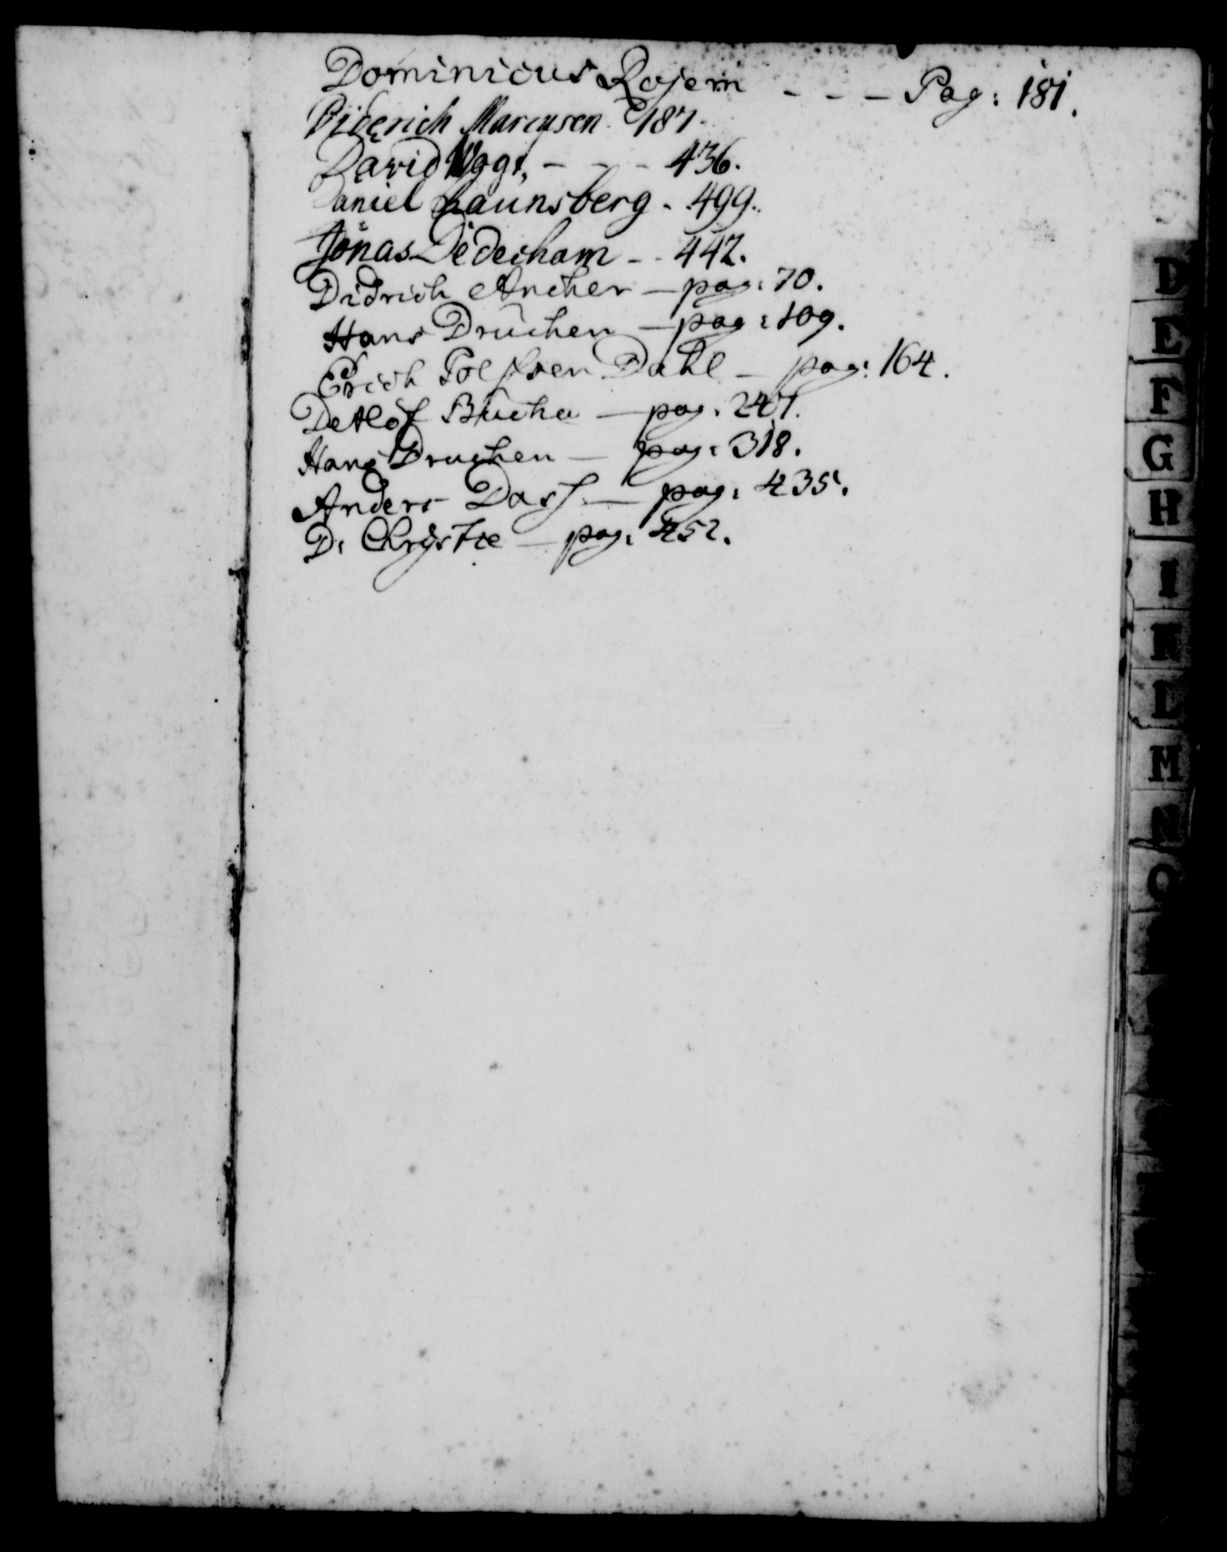 Dominicus Rosem - - - Pag: 181.
Diderich Marcusen P 187.
David Vogt, - - - 436.
Daniel Launsberg - 499.
Jonas Dedecham - - 442.
Didrich Ancher - pag: 70.
Hans Drüchen - pag: 109.
Erich Dahl - pag: 164.
Detlof - pag: 247.
Hans Druchen - pag: 318.
Anders Dass - pag: 435.
D: Christie - pag: 452.
D
E
F
G
H
I
K
L
M
N
O